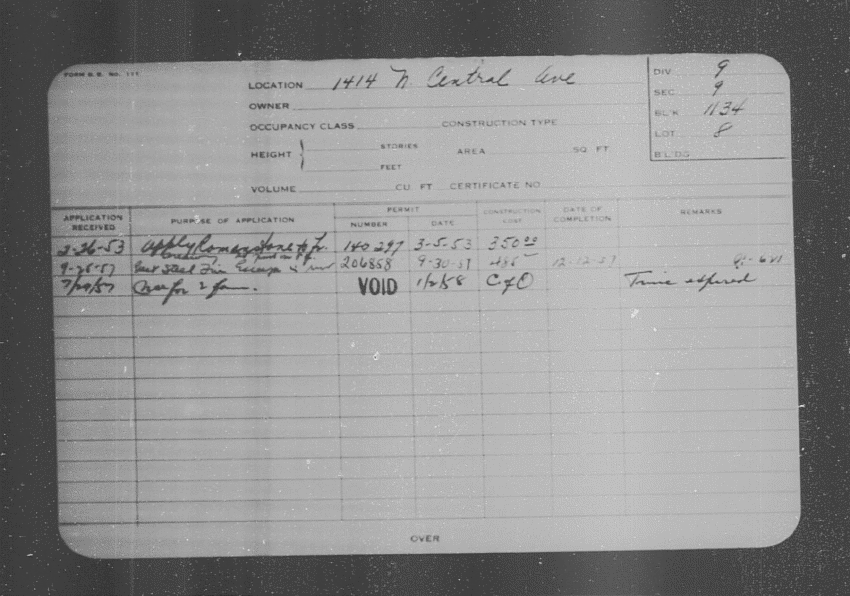 FORM B. E. NO. 111
LOCATION 1414 N. Central Ave
DIV. 9
SEC. 9
OWNER
BL'K 1134
OCCUPANCY CLASS CONSTRUCTION TYPE
LOT 8
HEIGHT STORIES FEET AREA SQ FT
BL'DG
VOLUME CU FT CERTIFICATE NO
APPLICATION RECEIVED PURPOSE OF APPLICATION PERMIT NUMBER DATE CONSTRUCTION COST DATE OF COMPLETION REMARKS
2-26-53 apply Romanstone to 140297 3-5-53 350.00
9-25-57 Steel Fire Escape 206858 9-30-57 485 12-12-57
7/29/57 Use for 2 fam. VOID 1/2/58 C of O Time expired
OVER